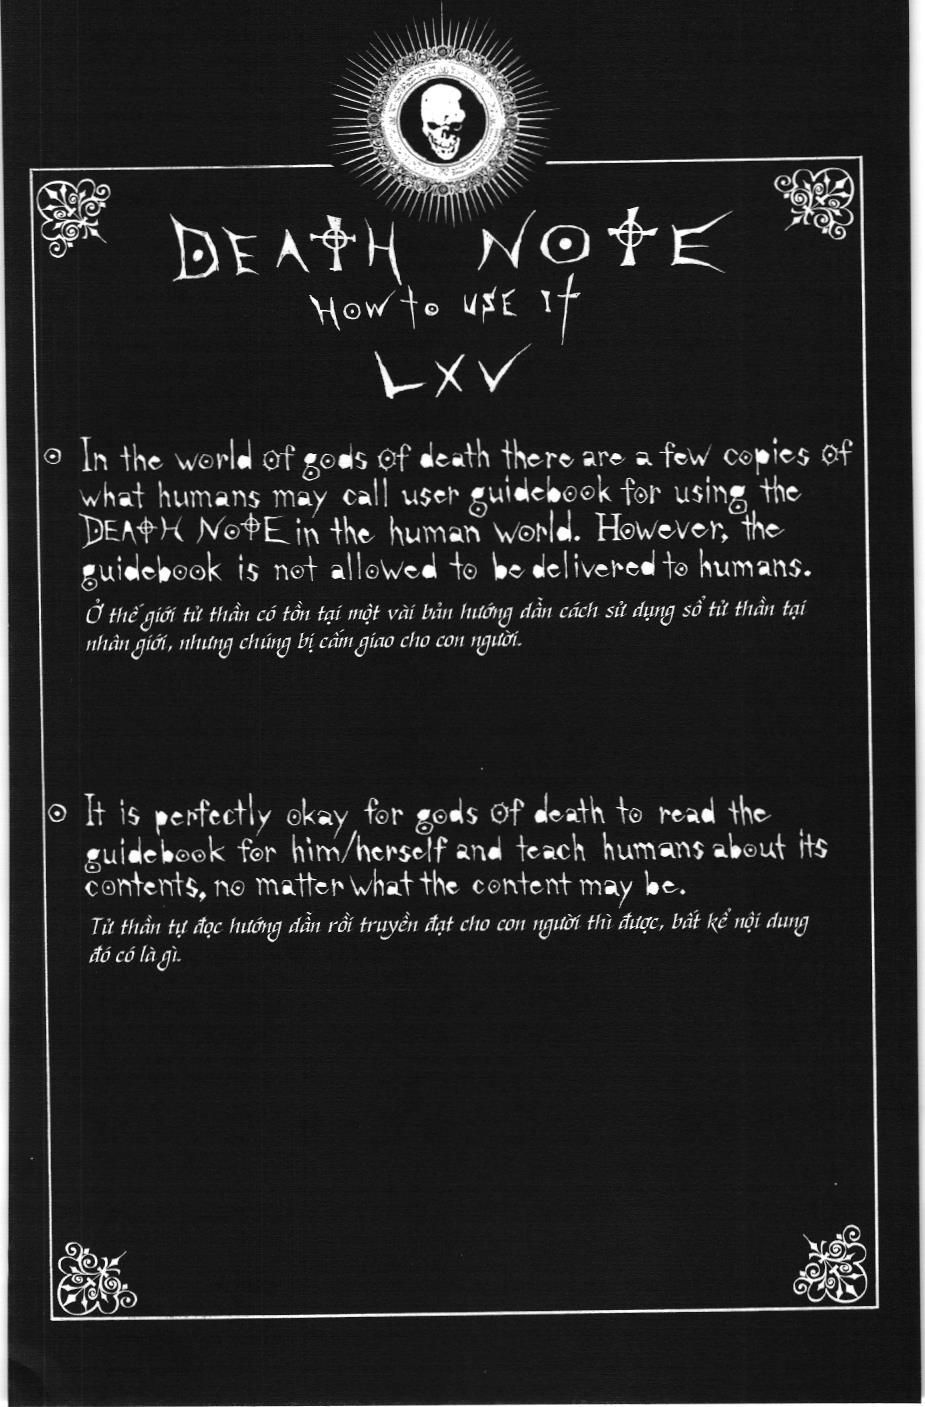 DEATH NOTE
HOW TO USE IT
LXV
In the world of gods of death there are a few copies of
what humans may call user guidebook for using the
DEATH NOTE in the human world. However, the
guidebook is not allowed to be delivered to humans.
Ở thế giới tử thần có tồn tại một vài bản hướng dẫn cách sử dụng sổ tử thần tại
nhân giới, nhưng chúng bị cấm giao cho con người.
It is perfectly okay for gods of death to read the
guidebook for him/herself and teach humans about its
contents, no matter what the content may be.
Tử thần tự đọc hướng dẫn rồi truyền đạt cho con người thì được, bất kể nội dung
đó có là gì.